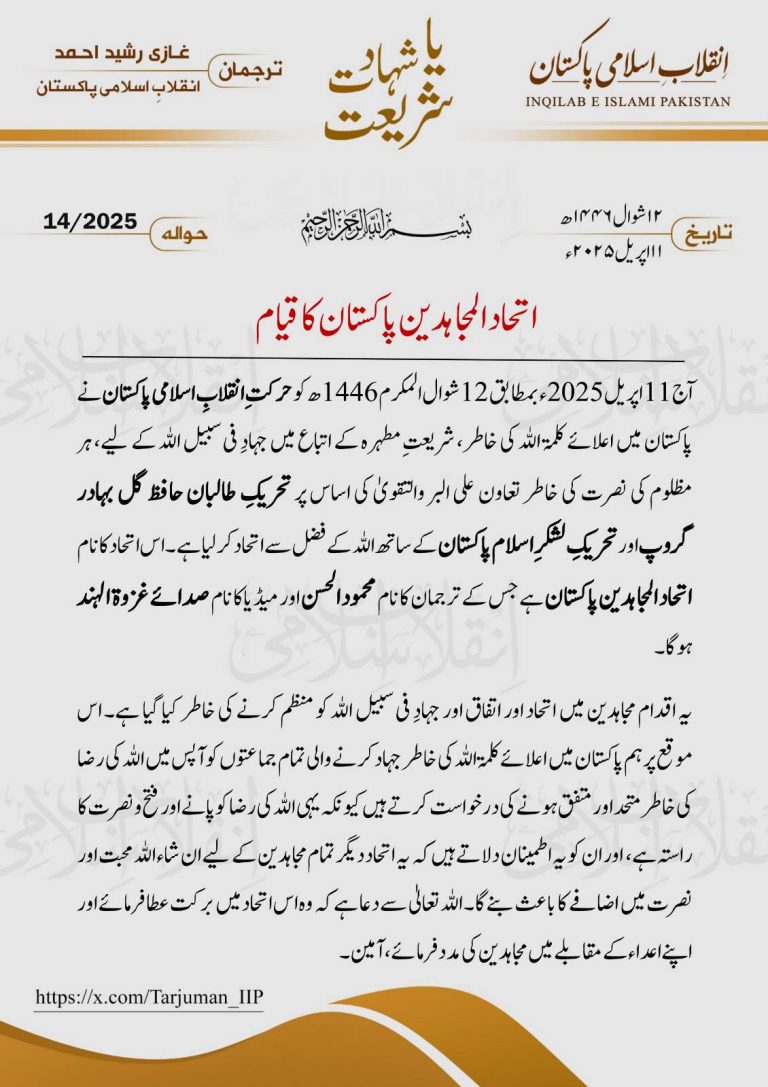 انقلابِ اسلامی پاکستان
INQILAB E ISLAMI PAKISTAN
یا شہادت
شریعت
ترجمان
غازی رشید احمد
انقلابِ اسلامی پاکستان
تاریخ
۱۲ شوال ۱۴۴۶ھ
۱۱ اپریل ۲۰۲۵ء
بسم اللہ الرحمن الرحیم
حوالہ
14/2025
اتحاد المجاہدین پاکستان کا قیام
آج 11 اپریل 2025ء بمطابق 12 شوال المکرم 1446ھ کو حرکتِ انقلابِ اسلامی پاکستان نے
پاکستان میں اعلائے کلمۃ اللہ کی خاطر، شریعتِ مطہرہ کے اتباع میں جہادِ فی سبیل اللہ کے لیے، ہر
مظلوم کی نصرت کی خاطر تعاون علی البر والتقویٰ کی اساس پر تحریکِ طالبان حافظ گل بہادر
گروپ اور تحریکِ لشکرِ اسلام پاکستان کے ساتھ اللہ کے فضل سے اتحاد کر لیا ہے۔ اس اتحاد کا نام
اتحاد المجاہدین پاکستان ہے جس کے ترجمان کا نام محمود الحسن اور میڈیا کا نام صدائے غزوۃ الہند
ہو گا۔
یہ اقدام مجاہدین میں اتحاد اور اتفاق اور جہادِ فی سبیل اللہ کو منظم کرنے کی خاطر کیا گیا ہے۔ اس
موقع پر ہم پاکستان میں اعلائے کلمۃ اللہ کی خاطر جہاد کرنے والی تمام جماعتوں کو آپس میں اللہ کی رضا
کی خاطر متحد اور متفق ہونے کی درخواست کرتے ہیں کیونکہ یہی اللہ کی رضا کو پانے اور فتح و نصرت کا
راستہ ہے، اور ان کو یہ اطمینان دلاتے ہیں کہ یہ اتحاد دیگر تمام مجاہدین کے لیے ان شاء اللہ محبت اور
نصرت میں اضافے کا باعث بنے گا۔ اللہ تعالیٰ سے دعا ہے کہ وہ اس اتحاد میں برکت عطا فرمائے اور
اپنے اعداء کے مقابلے میں مجاہدین کی مدد فرمائے، آمین۔
https://x.com/Tarjuman_IIP